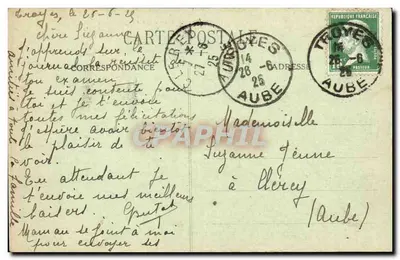 Troyes, le 26-6-25
CARTE POSTALE
CORRESPONDANCE
ADRESSE
Chère Suzanne
J'apprends sur le
journal le résultat
ton examen
Je suis contente pour
toi et je t'envoie
toutes mes félicitations
J'espère avoir bientôt
le plaisir de te
voir.
En attendant je
t'envoie mes meilleurs
baisers.
Maman se joint à moi
pour envoyer ses
à toute la famille
TROYES
14
26-6
25
AUBE
TROYES
26-6
25
AUBE
27-6
25
AUBE
REPUBLIQUE FRANCAISE
Mademoiselle
Suzanne
à Clérey
(Aube)
CPARAMA